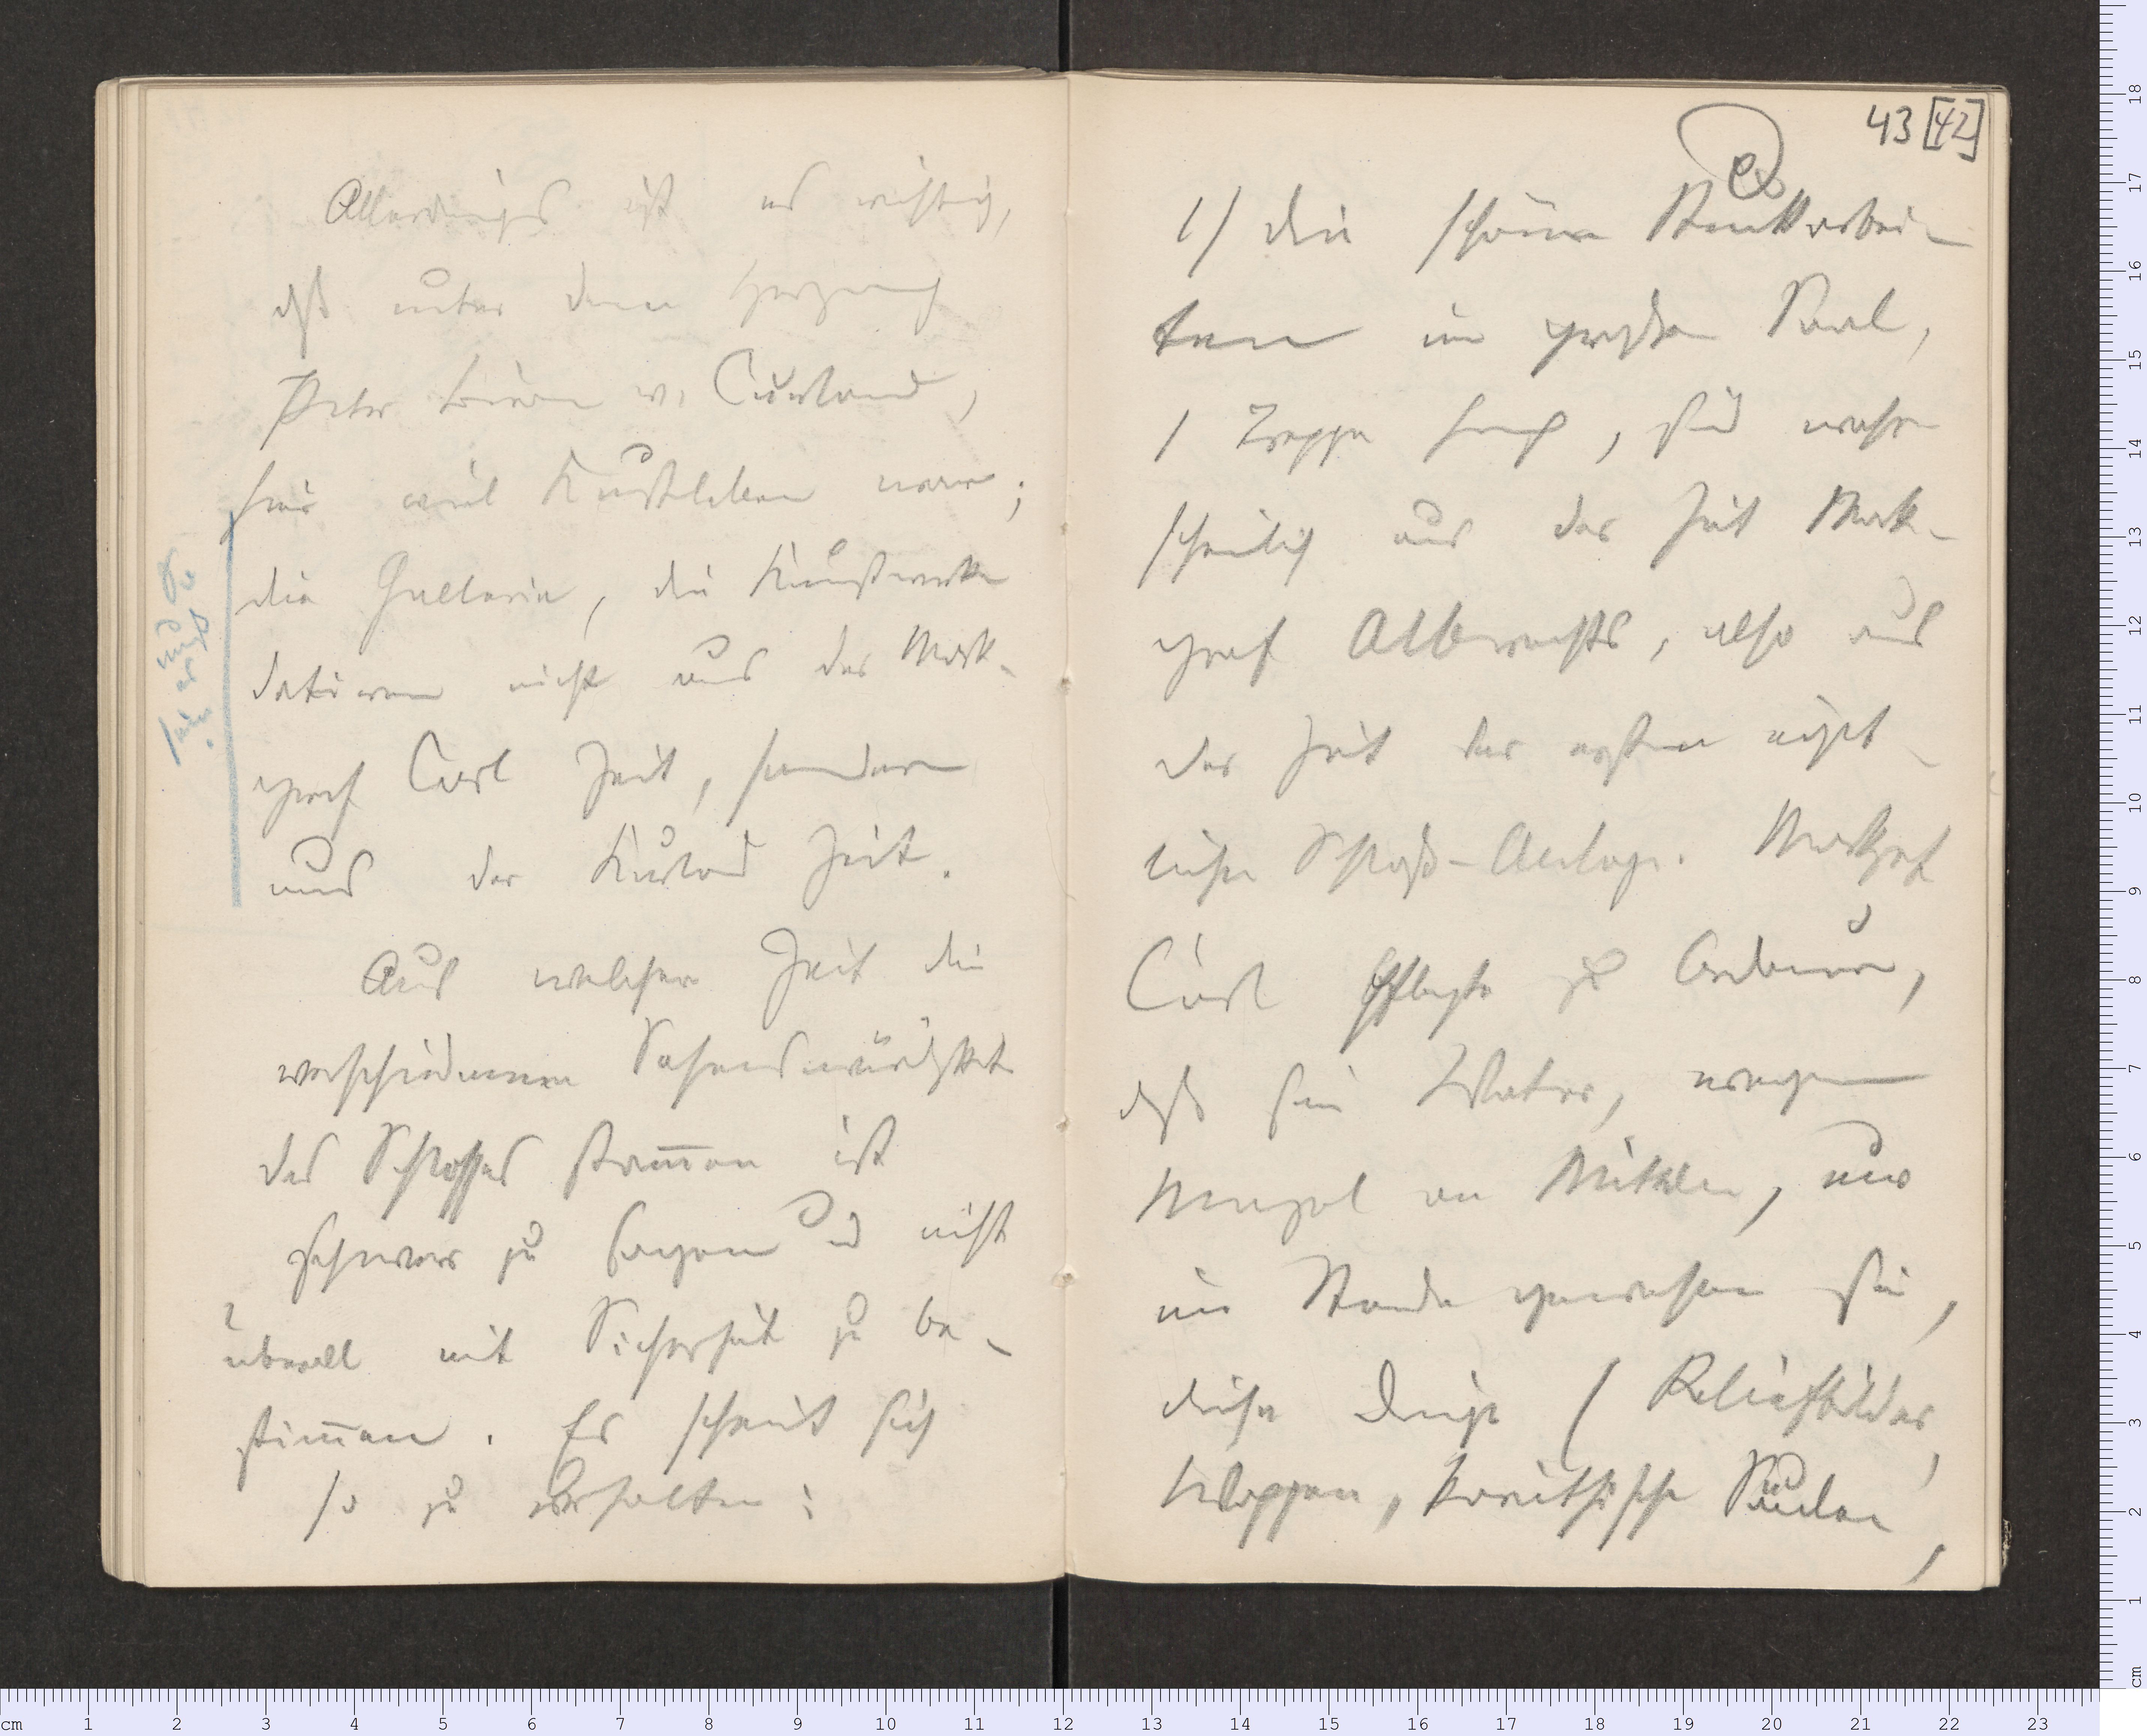 Allerdings ist es richtig,
dß unter dem Herzog
Peter Biron v. Curland,
hier viel Kunstleben war;
die Gallerie, die Kunstwerke
datiren nicht aus der Mark-
graf Carl Zeit, sondern
aus der Kurland Zeit.
So
muß es
sein.
Aus welcher Zeit die
verschiedenen Sehenswürdigkeit
des Schlosses stam̄en ist
schwer zu sagen u nicht
überall mit Sicherheit zu be-
stim̄en. Es scheint sich
so zu verhalten:
43 [42]
1) die schönen Stuckarbei-
ten im großen Saal,
1 Treppe hoch, sind wahr
scheinlich aus der Zeit Mark-
graf Albrechts, also aus
der Zeit der ersten eigent-
lichen Schloß-Anlage. Markgraf
Carl pflegte zu bedauern,
dß sein Vater, wegen
Mangel an Mitteln, nur
im Stande gewesen sei,
diese Dinge (Reliefbilder,
Wappen, korinthische Säulen,